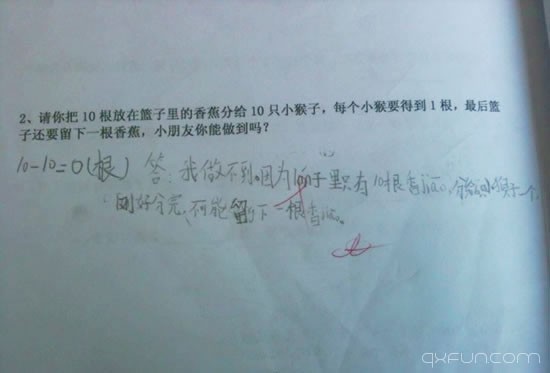 2、请你把 10 根放在篮子里的香蕉分给 10 只小猴子，每个小猴要得到 1 根，最后篮
子还要留下一根香蕉，小朋友你能做到吗？
10-10=0(根) 答：我做不到。因为lán子里只有10根香jiāo。分给 小猴子一个
刚好分完，不能留下一根香jiāo。
qxfun.com